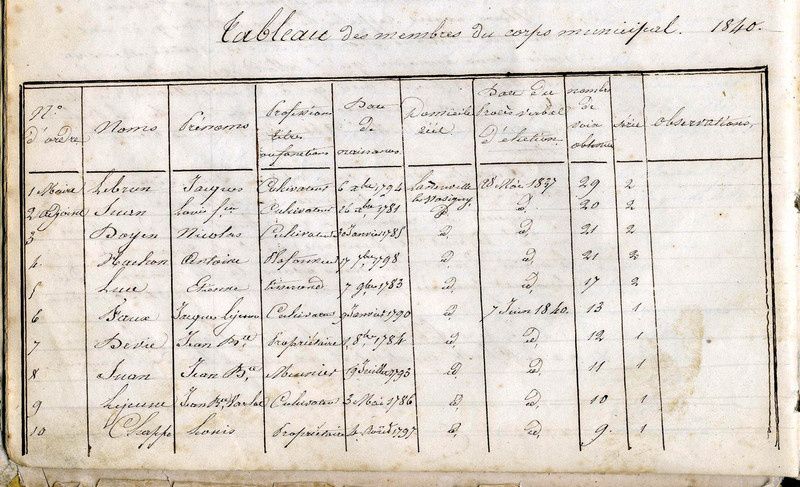 Tableau des membres du corps municipal. 1840.
N° d'ordre Noms Prénoms Professions titre ou fonctions Date de naissances Domicile réel Date du Procès verbal d'élection nombre de voix obtenues Série Observations
1 Maire Lebrun Jacques Cultivateur 6 Xbre 1794 28 Mai 1837 29 2
2 adjoint Juan Louis Cultivateur 26 1781 id. id. 20 2
3 Boyen Nicolas Cultivateur 30 Janvier 1785 id. id. 21 2
4 Antoire 17 7bre 1798 id. id. 21 2
5 Luce Etienne 7 9bre 1783 id. id. 17 2
6 Faux Jacques Cultivateur 9 Janvier 1790 id. 7 Juin 1840. 13 1
7 Jean Bte Propriétaire 1, 8bre 1784 id. id. 12 1
8 Juan Jean Bte Meunier 19 Juillet 1793 id. id. 11 1
9 Lejeune Jean Bte Cultivateur 3 Mai 1786 id. id. 10 1
10 Chappe Louis Propriétaire 4 Août 1797 id. id. 9. 1